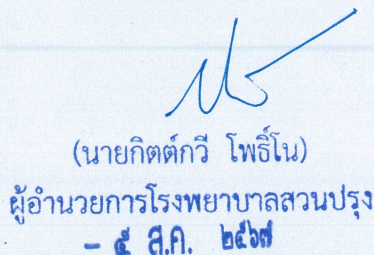 (นายกิตต์กวี โพธิ์โน)
ผู้อำนวยการโรงพยาบาลสวนปรุง
- ๕ ส.ค. ๒๕๖๗